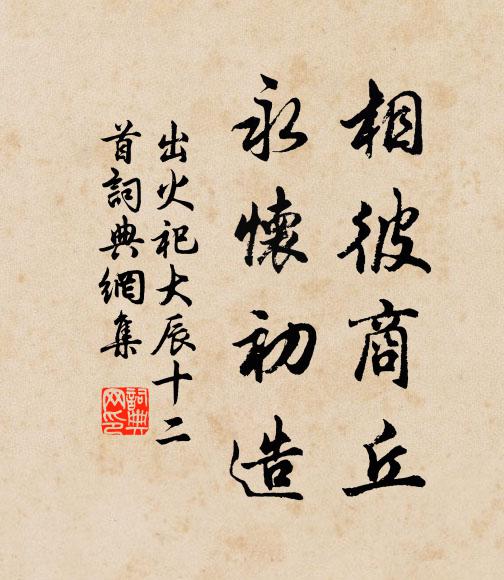 相彼商丘
永懷初造
出火祀大辰十二
首詞典網集
詞典
网印